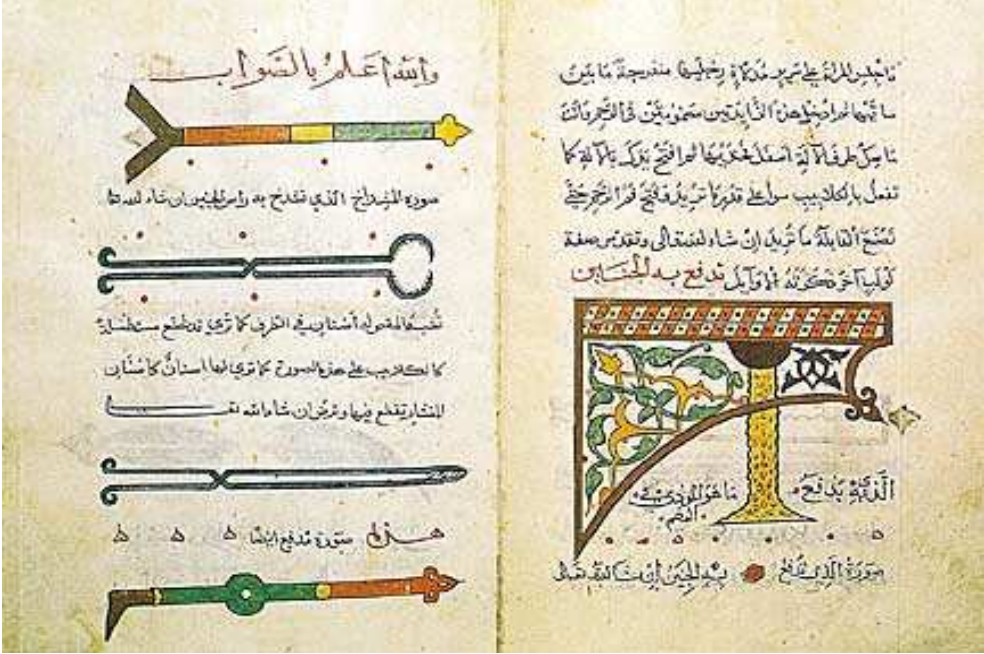 تجلس المراة على سرير مدلاة رجليها منفرجة ما بين
ساقيها ثم ادخل هذه الزايدتين مضمومتين في الرحم وانت
ماسك طرف الالة اسفل فخذيها ثم افتح يدك بالالة كما
تفعل بالكلاليب سوا على قدر ما تريد فتح فم الرحم حتى
تصنع القابلة ما تريد ان شاء الله تعالى صفة
لولب آخر ذكرته الاوايل تدفع به الجنين
الذي يدفع ما هو الموذي في
الفم
صورة الذي تدفع به الجنين إن شا الله تعالى
والله اعلم بالصواب
صورة المشداخ الذي تشدخ به راس الجنين ان شاء الله تعا
تشبه المقص له أسنان في الطرف كما ترى قد تصنع مستطيلة
كالكلاليب على هذه الصورة كما ترى لها اسنان كأسنان
المنشار تقطع بها وترض ان شاء الله تعـ
هذه صورة مدفع ايضا